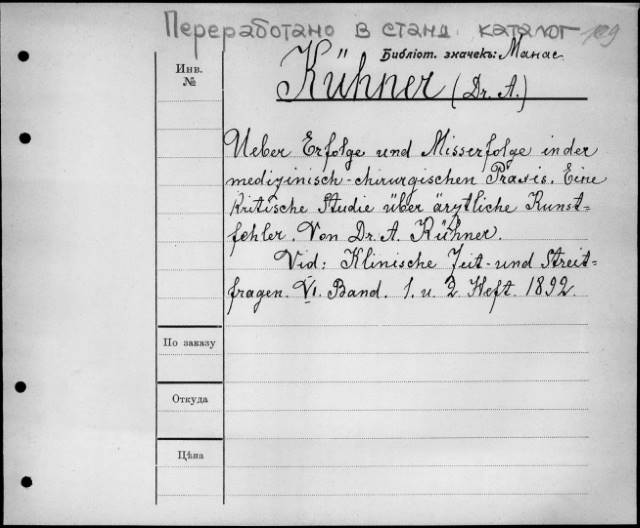 Переработано в станд. каталог 129
Библіот. значекъ: Манас.
Инв.
№
Kühner (Dr. A.)
Ueber Erfolge und Misserfolge in der
medizinisch-chirurgischen Praxis. Eine
kritische Studie über ärztliche Kunst=
fehler. Von Dr. A. Kühner.
Vid: Klinische Zeit- und Streit=
fragen. VI. Band. 1. u. 2. Heft. 1892.
По заказу
Откуда
Цѣна